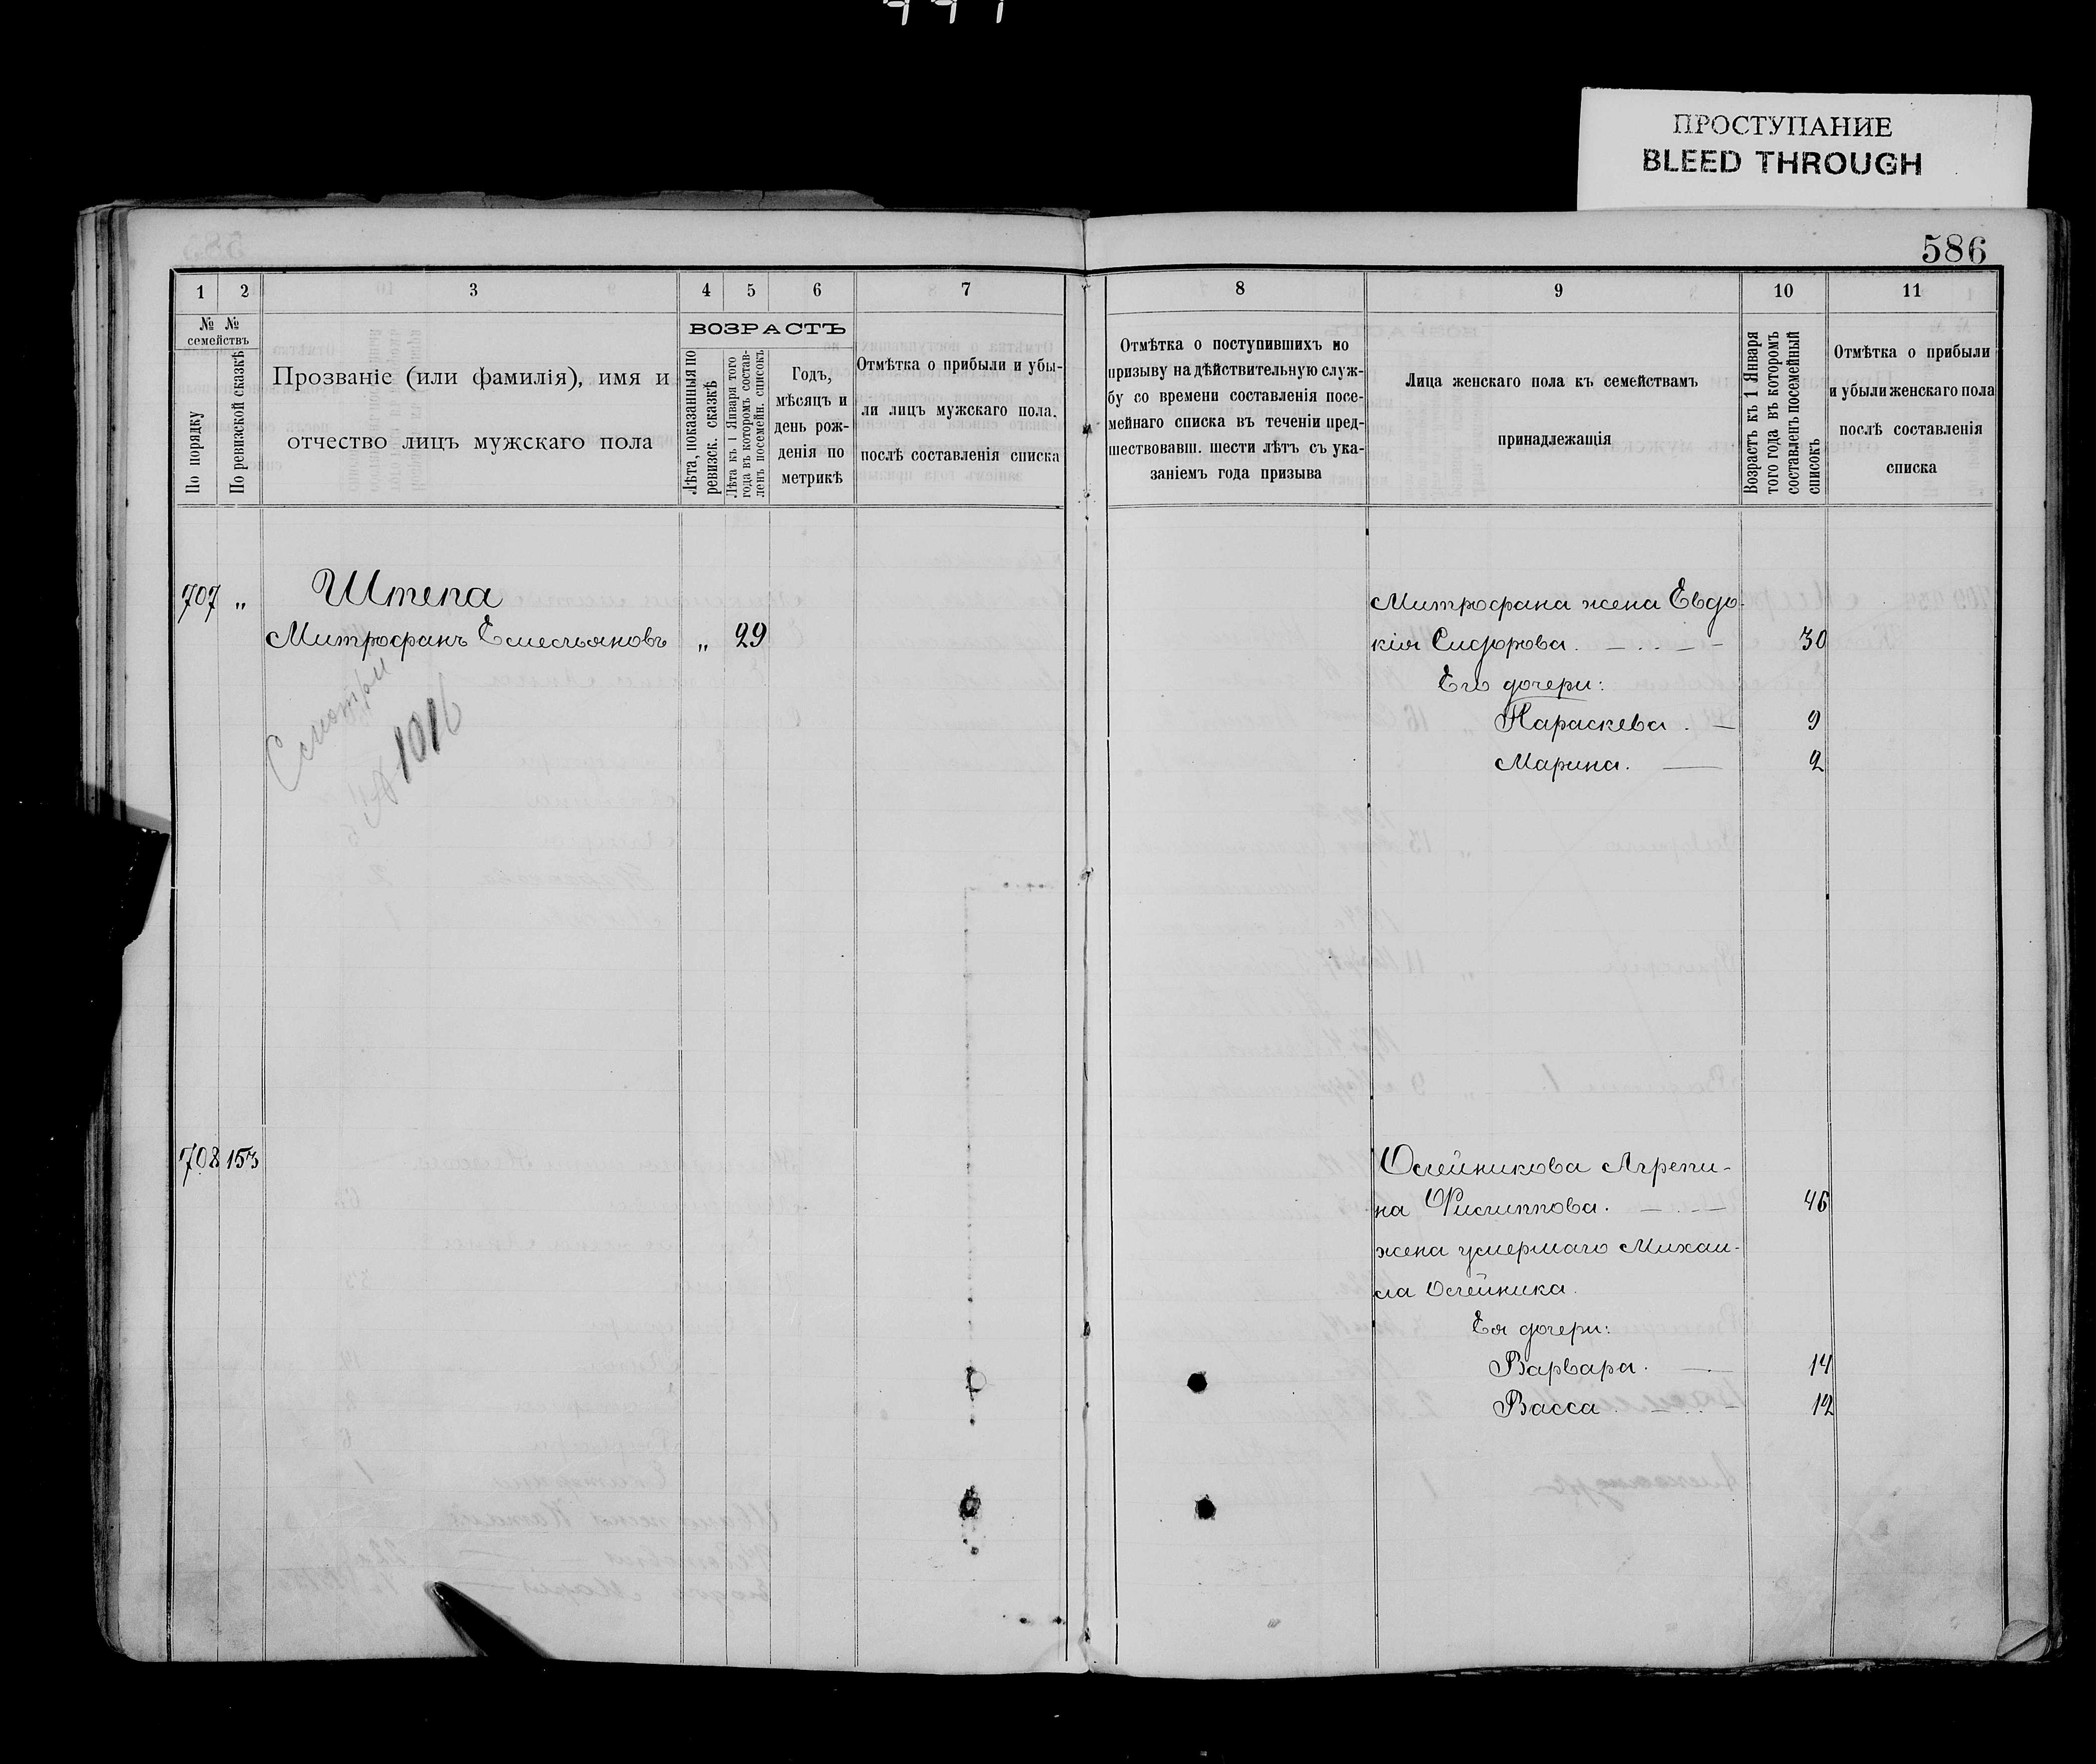 ПРОСТУПАНИЕ
BLEED THROUGH
586
1 2 3 4 5 6 7
№ №
семействъ
По порядку
По ревизской сказкѣ
Прозваніе (или фамилія), имя и
отчество лицъ мужскаго пола
ВОЗРАСТЪ
Лѣта, показанныя по
ревизск. сказкѣ
Лѣта къ 1 Января того
года въ которомъ состав-
ленъ посемейн. списокъ
Годъ,
мѣсяцъ и
день рож-
денія по
метрикѣ
Отмѣтка о прибыли и убы-
ли лицъ мужскаго пола,
послѣ составленія списка
707 „ Штепа
Митрофанъ Емельяновъ „ 29
Смотри
№ 1016
708 153
8 9 10 11
Отмѣтка о поступившихъ по
призыву на дѣйствительную служ-
бу со времени составленія посе-
мейнаго списка въ теченіи пред-
шествовавш. шести лѣтъ съ ука-
заніемъ года призыва
Лица женскаго пола къ семействамъ
принадлежащія
Возрастъ къ 1 Января
того года въ которомъ
составленъ посемейный
списокъ
Отмѣтка о прибыли
и убыли женскаго пола
послѣ составленія
списка
Митрофана жена Евдо-
кія Сидорова. 30
Его дочери:
Параскева. 9
Марина. 2
Олейникова Агрепи-
на Филиппова. 46
жена умершаго Михаи-
ла Олейника.
Ея дочери:
Варвара. 14
Васса. 12